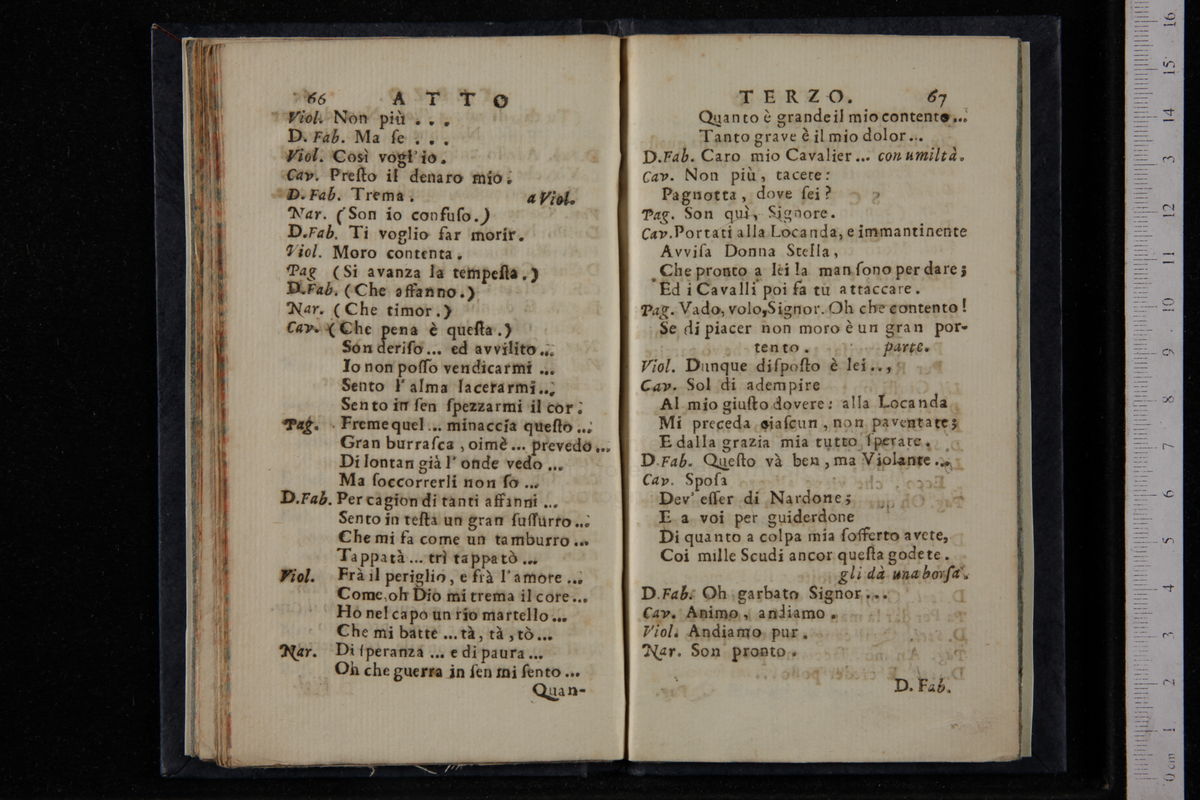 66 ATTO
Viol. Non più . . .
D. Fab. Ma ſe . . .
Viol. Così vogl'io.
Cav. Preſto il denaro mio.
D. Fab. Trema. a Viol.
Nar. (Son io confuſo.)
D. Fab. Ti voglio far morir.
Viol. Moro contenta.
Pag (Si avanza la tempeſta.)
D. Fab. (Che affanno.)
Nar. (Che timor.)
Cav. (Che pena è queſta.)
Son deriſo ... ed avvilito ...
Io non poſſo vendicarmi ...
Sento l'alma lacerarmi ...
Sento in ſen ſpezzarmi il cor.
Pag. Freme quel ... minaccia queſto ...
Gran burraſca, oimè ... prevedo ...
Di lontan già l'onde vedo ...
Ma ſoccorrerli non ſo ...
D. Fab. Per cagion di tanti affanni ...
Sento in teſta un gran ſuſſurro ...
Che mi fa come un tamburro ...
Tappatà ... trì tappatò ...
Viol. Frà il periglio, e frà l'amore ...
Come oh Dio mi trema il core ...
Ho nel capo un rio martello ...
Che mi batte ... tà, tà, tò ...
Nar. Di ſperanza ... e di paura ...
Oh che guerra in ſen mi ſento ...
Quan-
TERZO. 67
Quanto è grande il mio contento ...
Tanto grave è il mio dolor ...
D. Fab. Caro mio Cavalier ... con umiltà.
Cav. Non più, tacete:
Pagnotta, dove ſei?
Pag. Son quì, Signore.
Cav. Portati alla Locanda, e immantinente
Avviſa Donna Stella,
Che pronto a lei la man ſono per dare;
Ed i Cavalli poi fa tu attaccare.
Pag. Vado, volo, Signor. Oh che contento!
Se di piacer non moro è un gran por-
tento. parte.
Viol. Dunque diſpoſto è lei ...
Cav. Sol di adempire
Al mio giuſto dovere: alla Locanda
Mi preceda ciaſcun, non paventate;
E dalla grazia mia tutto ſperate.
D. Fab. Queſto và ben, ma Violante ...
Cav. Spoſa
Dev' eſſer di Nardone;
E a voi per guiderdone
Di quanto a colpa mia ſofferto avete,
Coi mille Scudi ancor queſta godete.
gli dà una borſa.
D. Fab. Oh garbato Signor ...
Cav. Animo, andiamo.
Viol. Andiamo pur.
Nar. Son pronto.
D. Fab.
16
15
14
13
12
11
10
9
8
7
6
5
4
3
2
1
0 cm